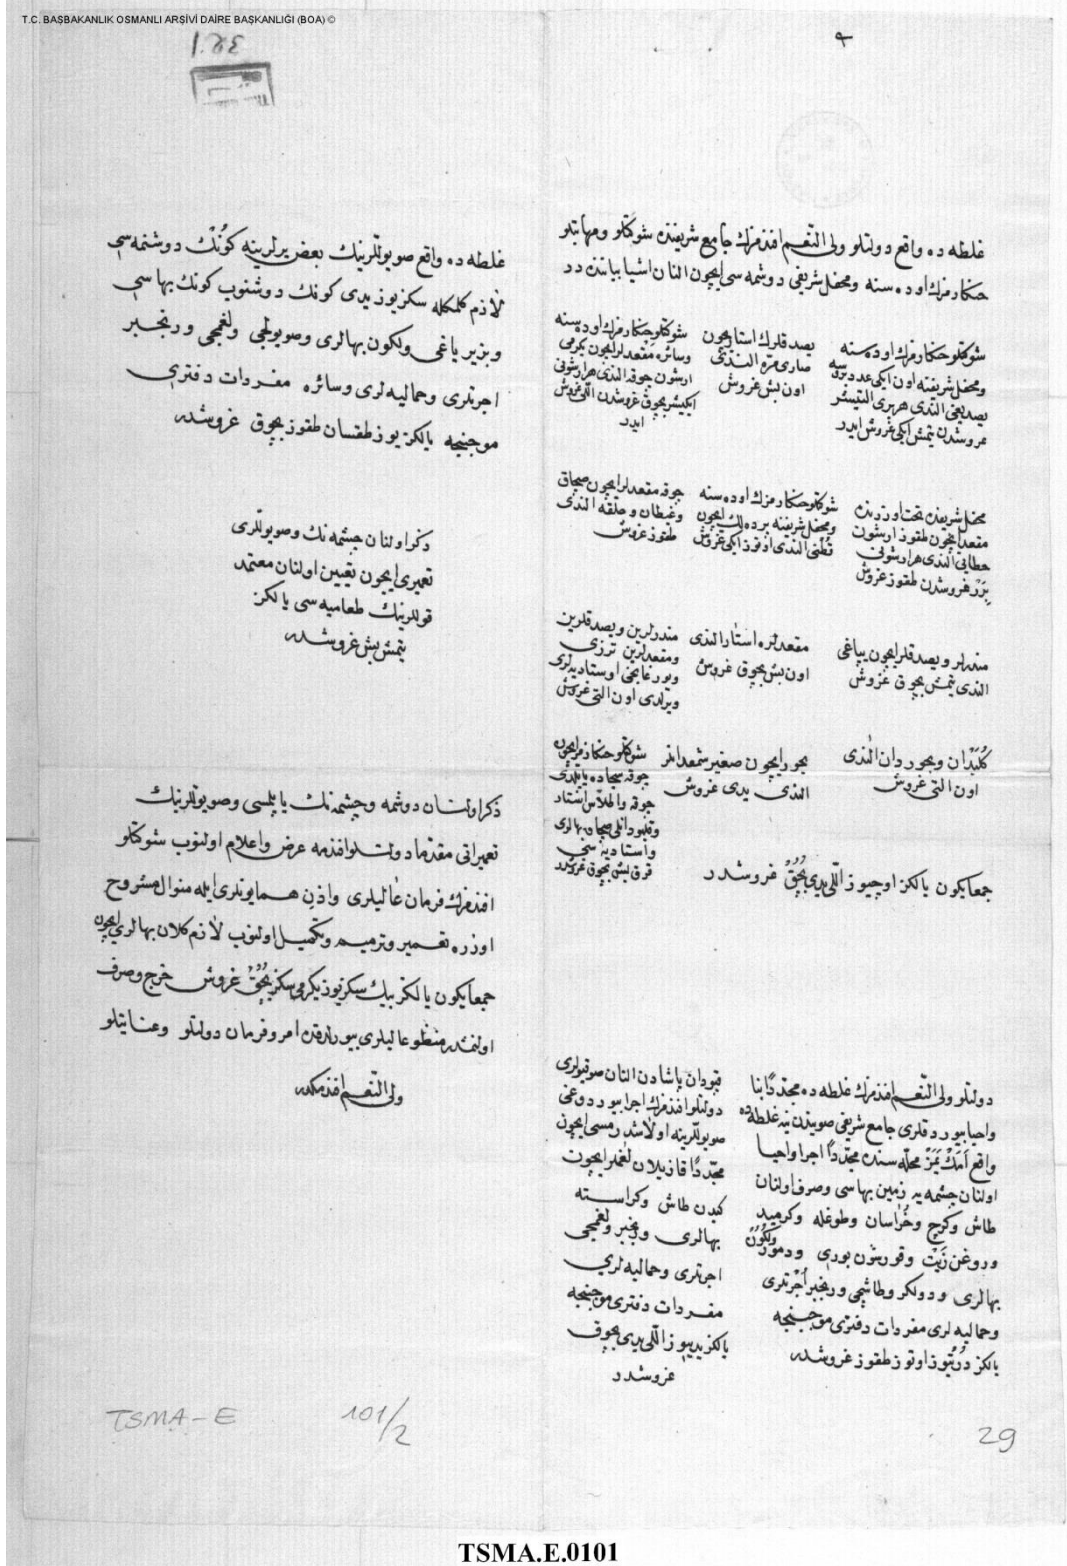 T.C. BAŞBAKANLIK OSMANLI ARŞİVİ DAİRE BAŞKANLIĞI (BOA) ©
غلطه ده واقع دولتلو ولی النعم افندمزك جامع شریفنده شوکتلو ومهابتلو
خنکارمزك اوده سنه ومحفل شریفی دوشمه سی ایچون النان اشیا بیاننده در
شوکتلو خنکارمزك اوده سنه
ومحفل شریفنه اون ایکی عدد بروسه
یصدیغی الندی هربری التیشر
غروشدن یتمش ایکی غروش ایدر
یصدقلرك استاری ایچون
صاری قره الندی
اون بش غروش
شوکتلو خنکارمزك اوده سنه
وسائره مقعدلر ایچون یکرمی
ارشون چوقه الندی هر ارشونی
ایکیشر بچوق غروشدن اللی غروش
ایدر
محفل شریفده تحت اوزرنده
مقعد ایچون طقوز ارشون
خطایی الندی هر ارشونی
برر غروشدن طقوز غروش
شوکتلو خنکارمزك اوده سنه
ومحفل شریفنه پرده لك ایچون
قطنی الندی اوتوز ایکی غروش
چوقه مقعدلر ایچون صچاق
وغیطان وحلقه الندی
طقوز غروش
مندرلر ویصدقلر ایچون یپاغی
الندی یتمش بچوق غروش
مقعدلره استار الندی
اون بش بچوق غروش
مندرلرین ویصدقلرین
ومقعدلرین ترزی
ویورغانجی اوستادیه لری
ویرلدی اون التی غروش
کلبدان وبخوردان الندی
اون التی غروش
بخور ایچون صغیر شمعدانلر
الندی یدی غروش
شوکتلو خنکارمز ایچون
چوقه سجاده یاپلدی
چوقه واطلاس استار
وقلبودانلی صچان بهالری
واستادیه سی
قرق بش بچوق غروشدر
جمعا یکون یالکز اوچیوز اللی یدی بچق غروشدر
دولتلو ولی النعم افندمزك غلطه ده مجددا بنا
واحیا بیوردقلری جامع شریفی صویندن ینه غلطه ده
واقع امك یمز محله سنده مجددا اجرا واحیا
اولنان چشمه یه زمین بهاسی وصرف اولنان
طاش وکرج وخراسان وطوغله وکرمید
وروغن زیت وقورشون بوری ودمور ولکون
بهالری ودولکر وطاشجی ورنجبر اجرتلری
وحمالیه لری مفردات دفتری موجبنجه
یالکز درتیوز اوتوز طقوز غروشدر
قپودان پاشادن النان صو قیولری
دولتلو افندمزك اجرا بیوردوغی
صویوللرینه اولاشدرمسی ایچون
مجددا قازیلان لغملر ایچون
کیدن طاش وکراسته
بهالری ورنجبر ولغمجی
اجرتلری وحمالیه لری
مفردات دفتری موجبنجه
یالکز یدییوز اللی یدی بچوق
غروشدر
غلطه ده واقع صویوللرینك بعض یرلرینه کونك دوشنمه سی
لازم کلمکله سکزیوز یدی کونك دوشنوب کونك بهاسی
وبزیر یاغی ولکون بهالری وصویولجی ولغمجی ورنجبر
اجرتلری وحمالیه لری وسائره مفردات دفتری
موجبنجه یالکز یوز طقسان طقوز بچوق غروشدر
ذکر اولنان چشمه نك وصویوللری
تعمیری ایچون تعیین اولنان معتمد
قوللرینك طعامیه سی یالکز
یتمش بش غروشدر
ذکر اولنان دوشمه وچشمه نك یاپلمسی وصویوللرینك
تعمیراتی مقدما دولتلو افندمه عرض واعلام اولنوب شوکتلو
افندمزك فرمان عالیلری واذن همایونلری ایله منوال مشروح
اوزره تعمیر وترمیم وتکمیل اولنوب لازم کلان بهالری ایچون
جمعا یکون یالکز بیك سکزیوز یکرمی سکز بچق غروش خرج وصرف
اولنمشدر منظور عالیلری بیورلدقده امر وفرمان دولتلو وعنایتلو
ولی النعم افندمکدر
TSMA-E 101/2
29
TSMA.E.0101